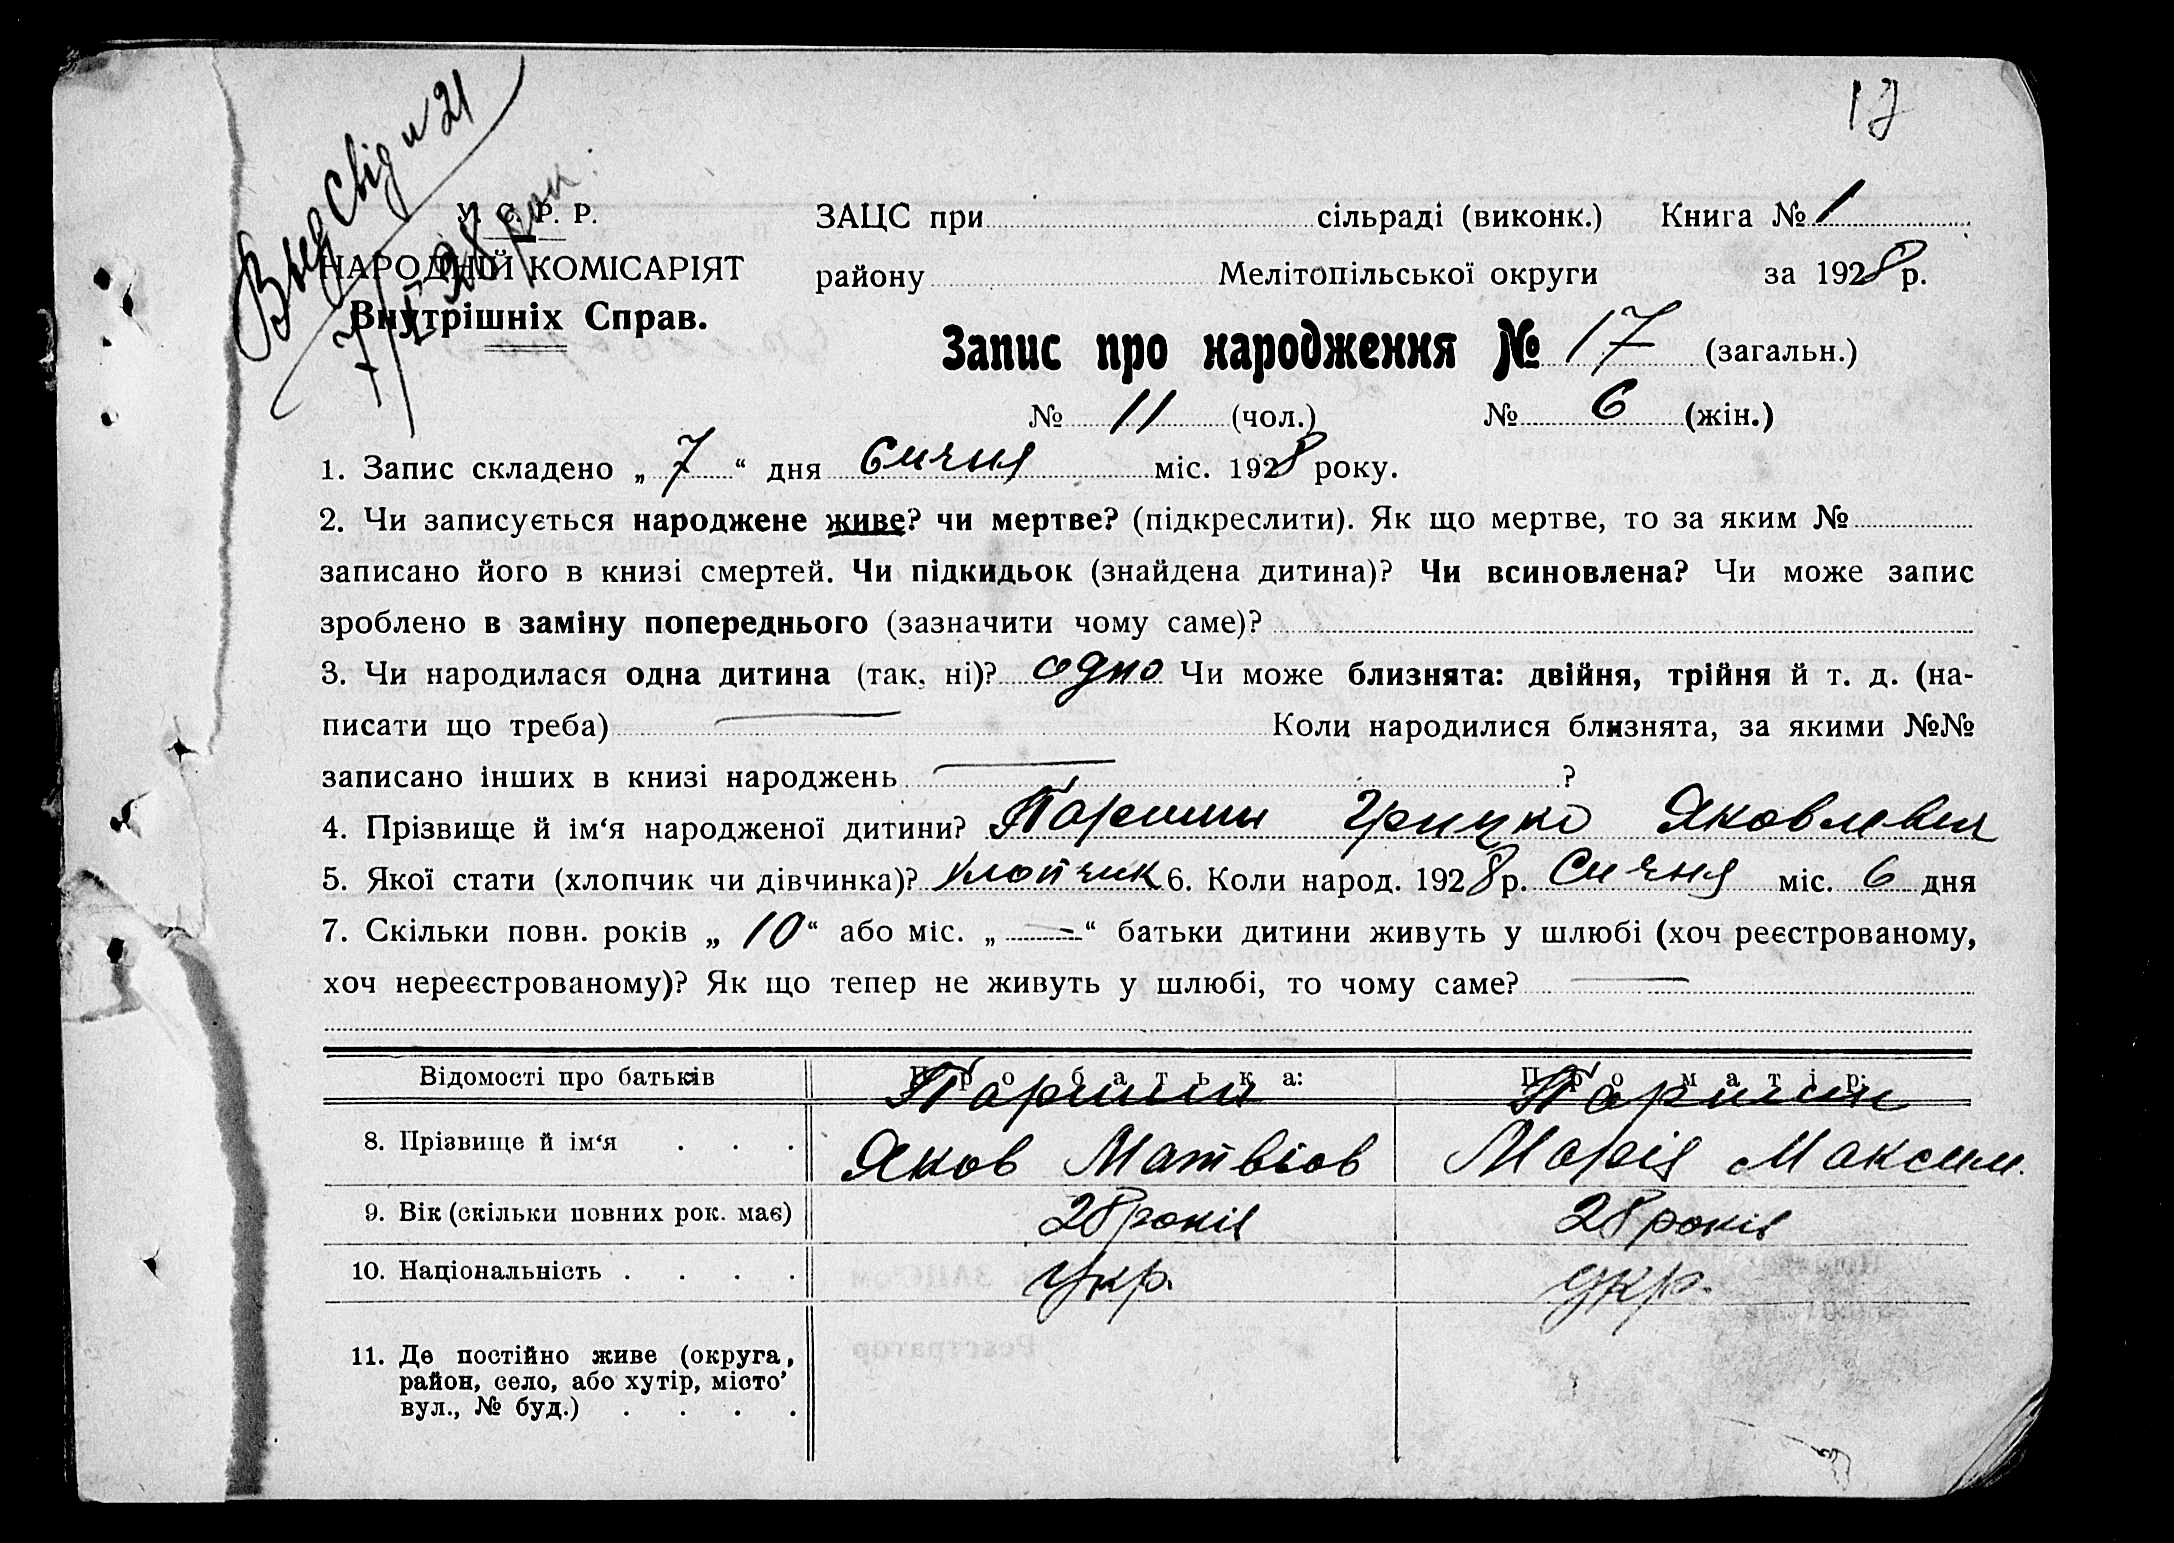 17
Выд Свід н 21
7/I 28 рок.
У. С. Р. Р.
НАРОДНІЙ КОМІСАРІЯТ
Внутрішніх Справ.
ЗАЦС при сільраді (виконк.) Книга № 1
району Мелітопільської округи за 1928 р.
Запис про народження № 17 (загальн.)
№ 11 (чол.) № 6 (жін.)
1. Запис складено „ 7 “ дня Січня міс. 1928 року.
2. Чи записується народжене живе? чи мертве? (підкреслити). Як що мертве, то за яким №
записано його в книзі смертей. Чи підкидьок (знайдена дитина)? Чи всиновлена? Чи може запис
зроблено в заміну попереднього (зазначити чому саме)?
3. Чи народилася одна дитина (так, ні)? одно Чи може близнята: двійня, трійня й т. д. (на-
писати що треба) — Коли народилися близнята, за якими №№
записано інших в книзі народжень — ?
4. Прізвище й ім‘я народженої дитини? Паршин Грицко Яковлевич
5. Якої стати (хлопчик чи дівчинка)? хлопчик 6. Коли народ. 1928 р. Січня міс. 6 дня
7. Скільки повн. років „ 10 “ або міс. „ — “ батьки дитини живуть у шлюбі (хоч реєстрованому,
хоч нереєстрованому)? Як що тепер не живуть у шлюбі, то чому саме? —
Відомості про батьків Про батька: Про матір:
Паршин Паршин
8. Прізвище й ім‘я . . . Яков Матвіов Марія Максим.
9. Вік (скільки повних рок. має) 28 років 28 років
10. Національність . . . . Укр. Укр.
11. Де постійно живе (округа,
район, село, або хутір, місто’
вул., № буд.) . . . .